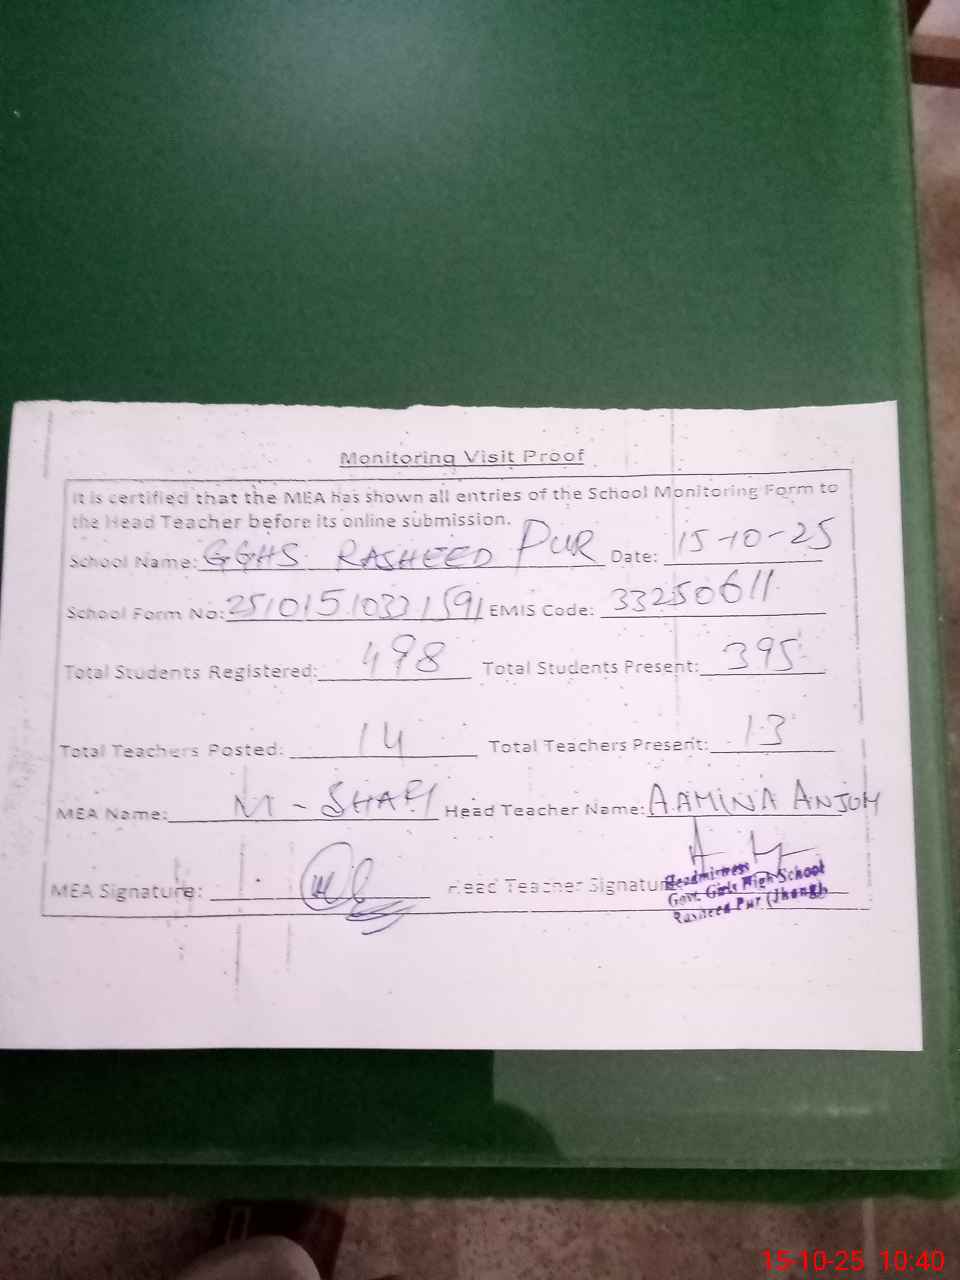 Monitoring Visit Proof
It is certified that the MEA has shown all entries of the School Monitoring Form to
the Head Teacher before its online submission.
School Name: GGHS RASHEED PUR Date: 15-10-25
School Form No: 251015103321591 EMIS Code: 33250611
Total Students Registered: 498 Total Students Present: 395
Total Teachers Posted: 14 Total Teachers Present: 13
MEA Name: M-SHAFI Head Teacher Name: A.AMINA ANJUM
MEA Signature: Head Teacher Signature
Headmistress
Govt. Girls High School
Rasheed Pur (Jhang)
15-10-25 10:40